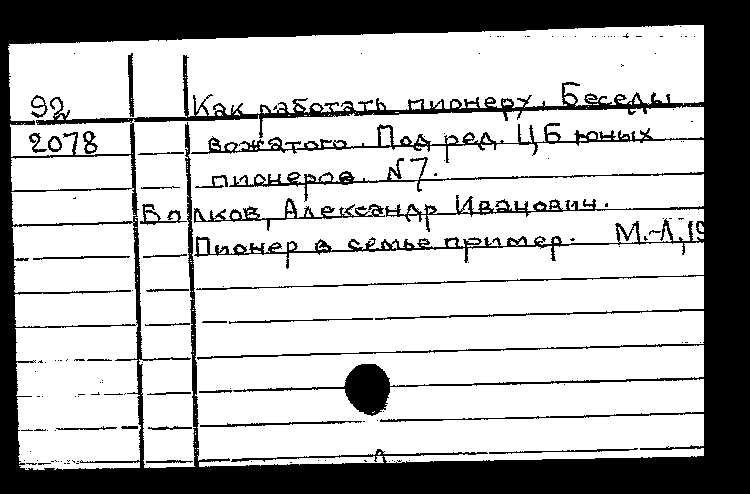 92 Как работать пионеру. Беседы
2078 вожатого. Под ред. ЦБ юных
пионеров. N7.
Волков, Александр Иванович.
Пионер в семье пример. М.-Л., 19